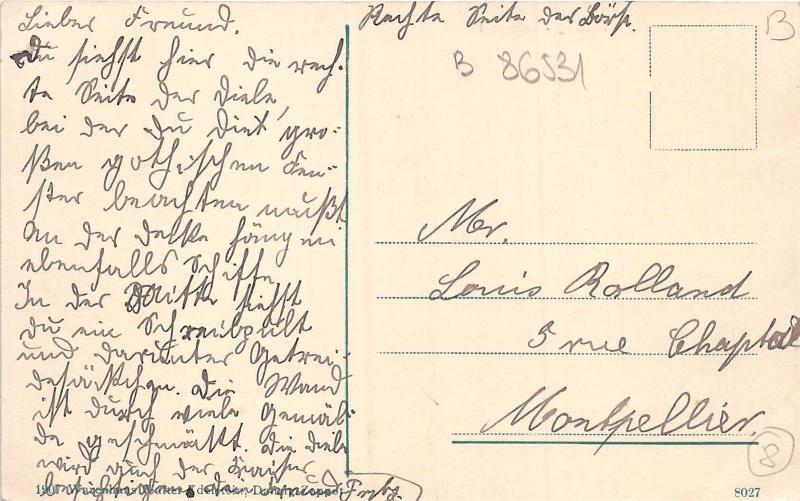 Lieber Freund.
Du siehst hier die rech-
te Seite der Diele,
bei der Du die gro-
ßen gothischen Fen-
ster beachten mußt.
An der Decke hängen
ebenfalls Schiffe.
In der Mitte siehst
du ein Schreibpult
und darunter Getrei-
desäckchen. Die Wand
ist durch viele Gemäl-
de geschmückt. Die Diele
wird auch der Kaiser
besichtigen
Fritz
Rechte Seite der Börse.
B
B 86531
Mr.
Louis Rolland
5 rue Chaptal
Montpellier.
8
1907
8027